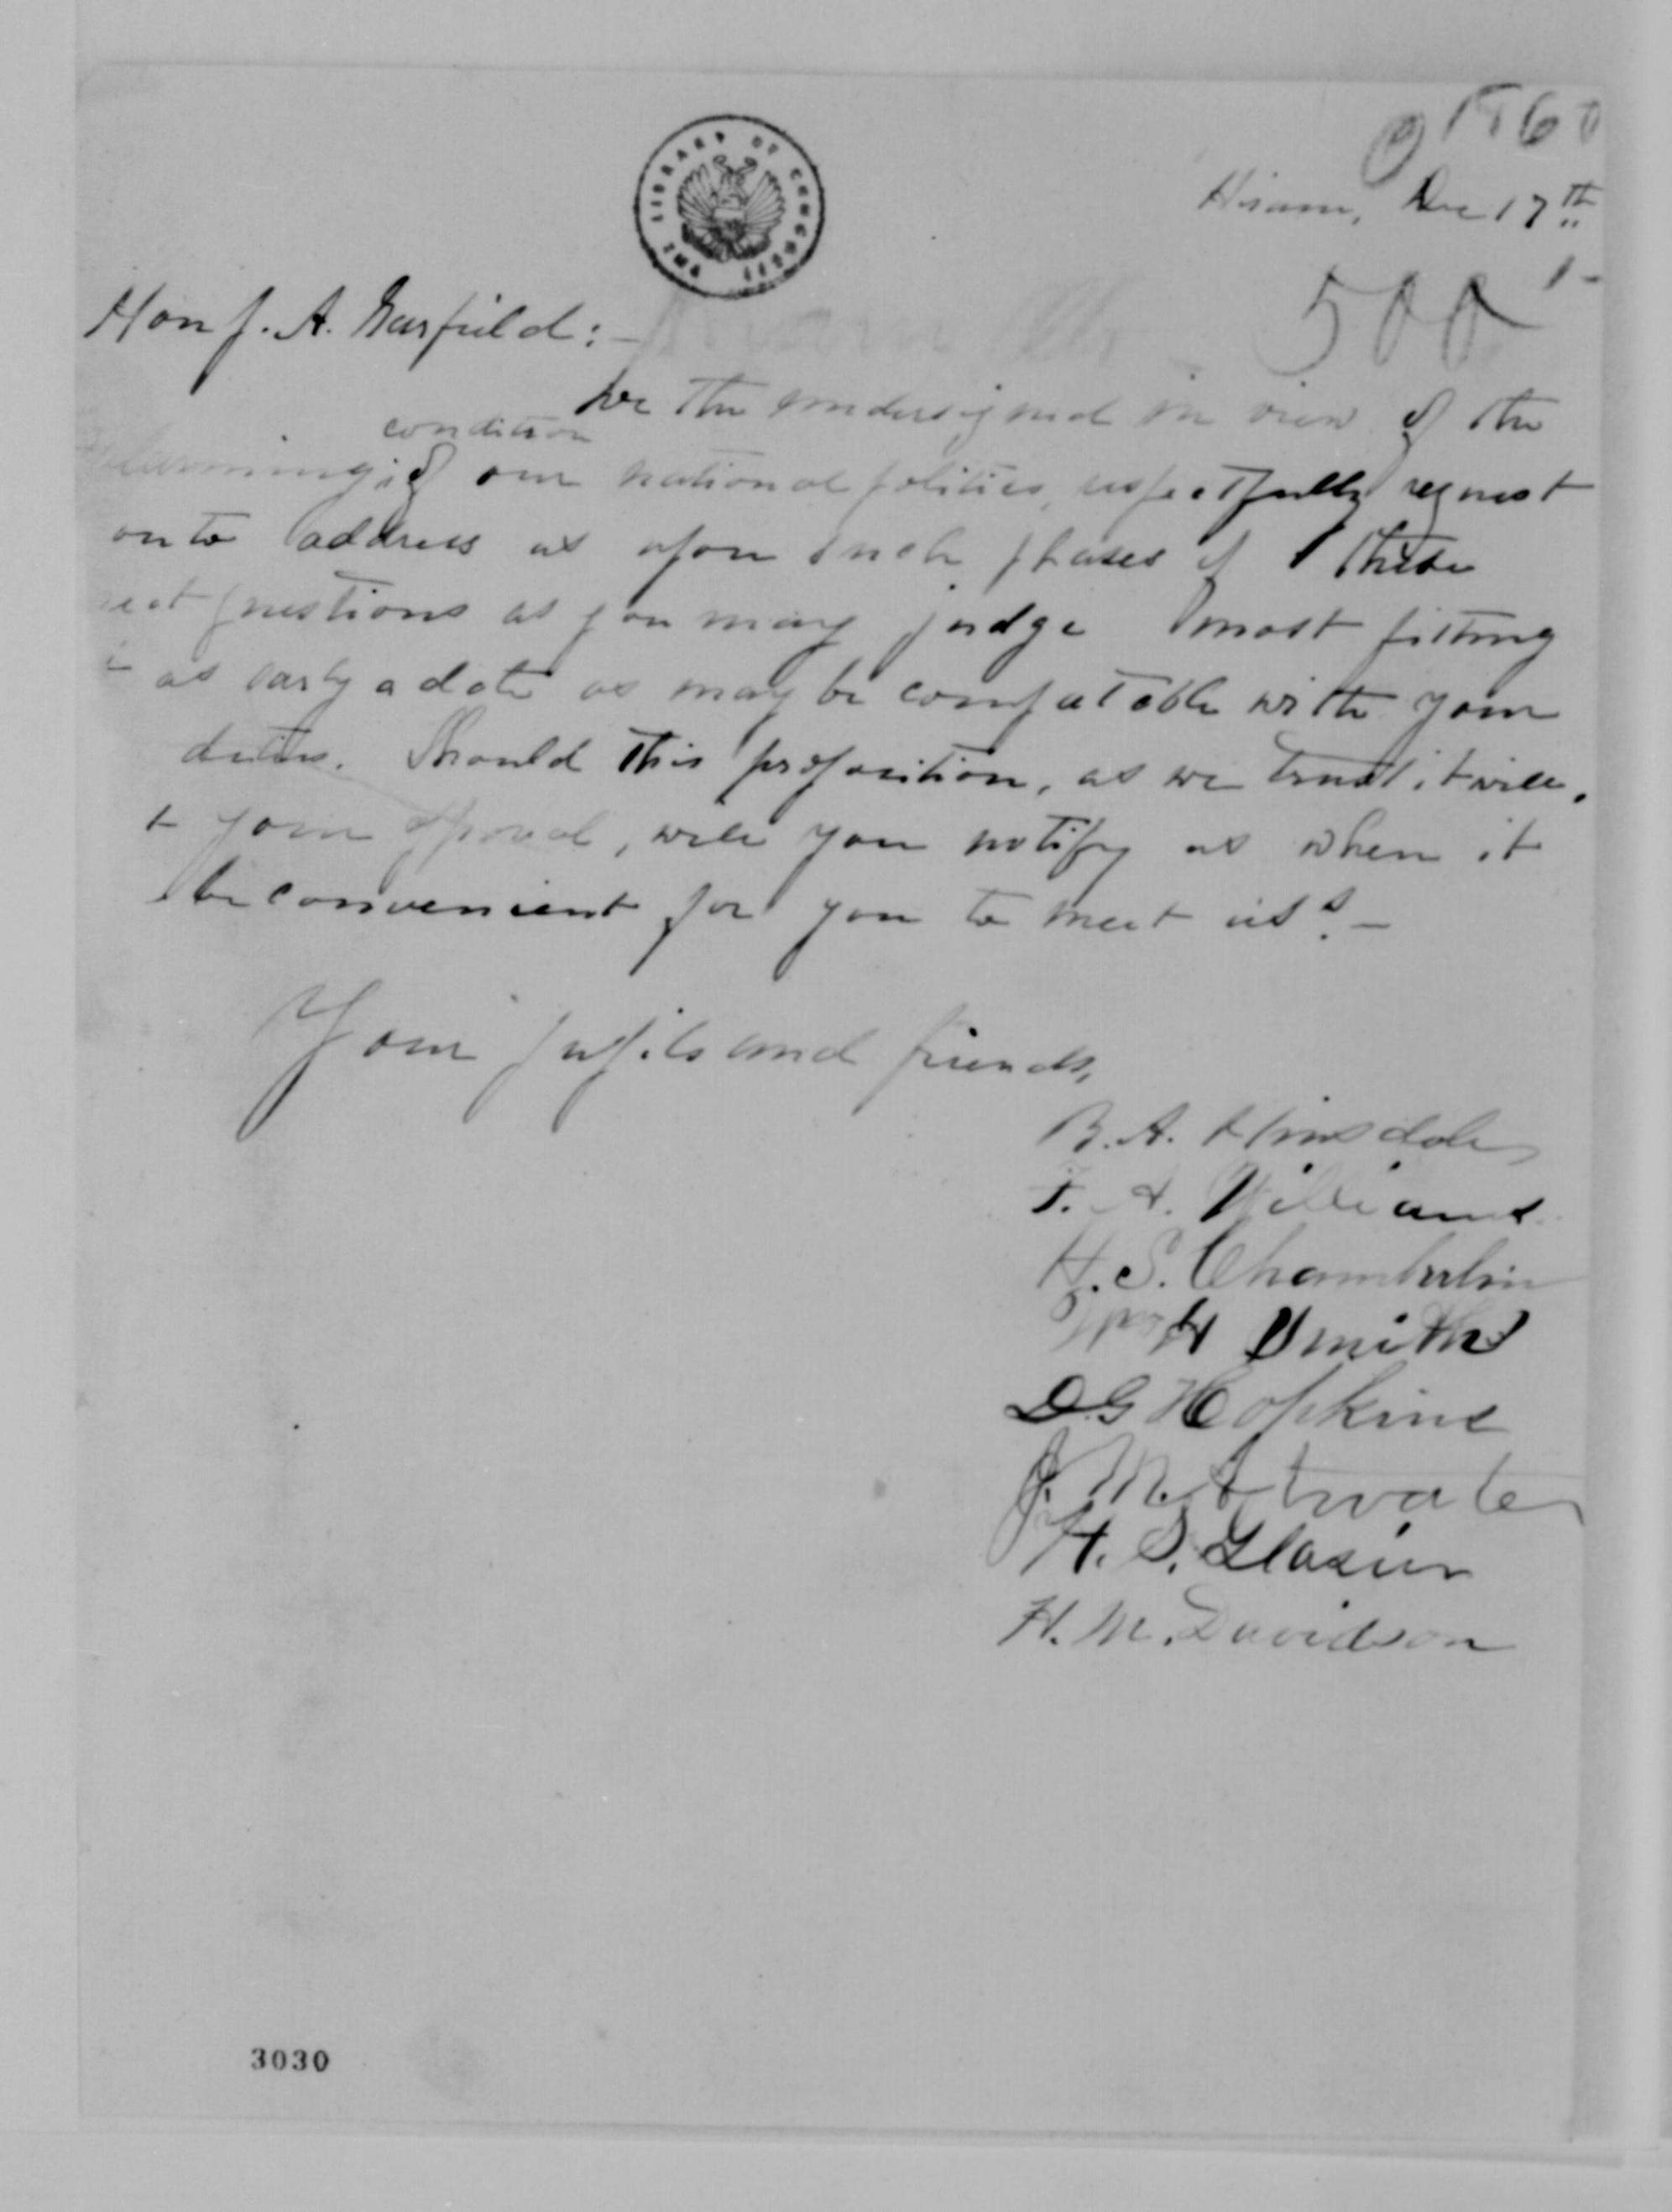 1860
THE LIBRARY OF CONGRESS
Hiram, Dec 17th
500
Hon J. A. Garfield:-
We the undersigned in view of the
condition
alarming of our national politics, respectfully request
ou to address us upon such phases of these
questions as you may judge most fitting
as early a date as may be compatable with your
duties. Should this proposition, as we trust it will,
t your approval, will you notify us when it
be convenient for you to meet us? -
Your pupils and friends,
B. A. Hinsdale
F. A. Williams
H. S. Chamberlin
Wm H Smith
D. G Hopkins
J. M. Atwater
H. S. Glasier
H. M. Davidson
3030